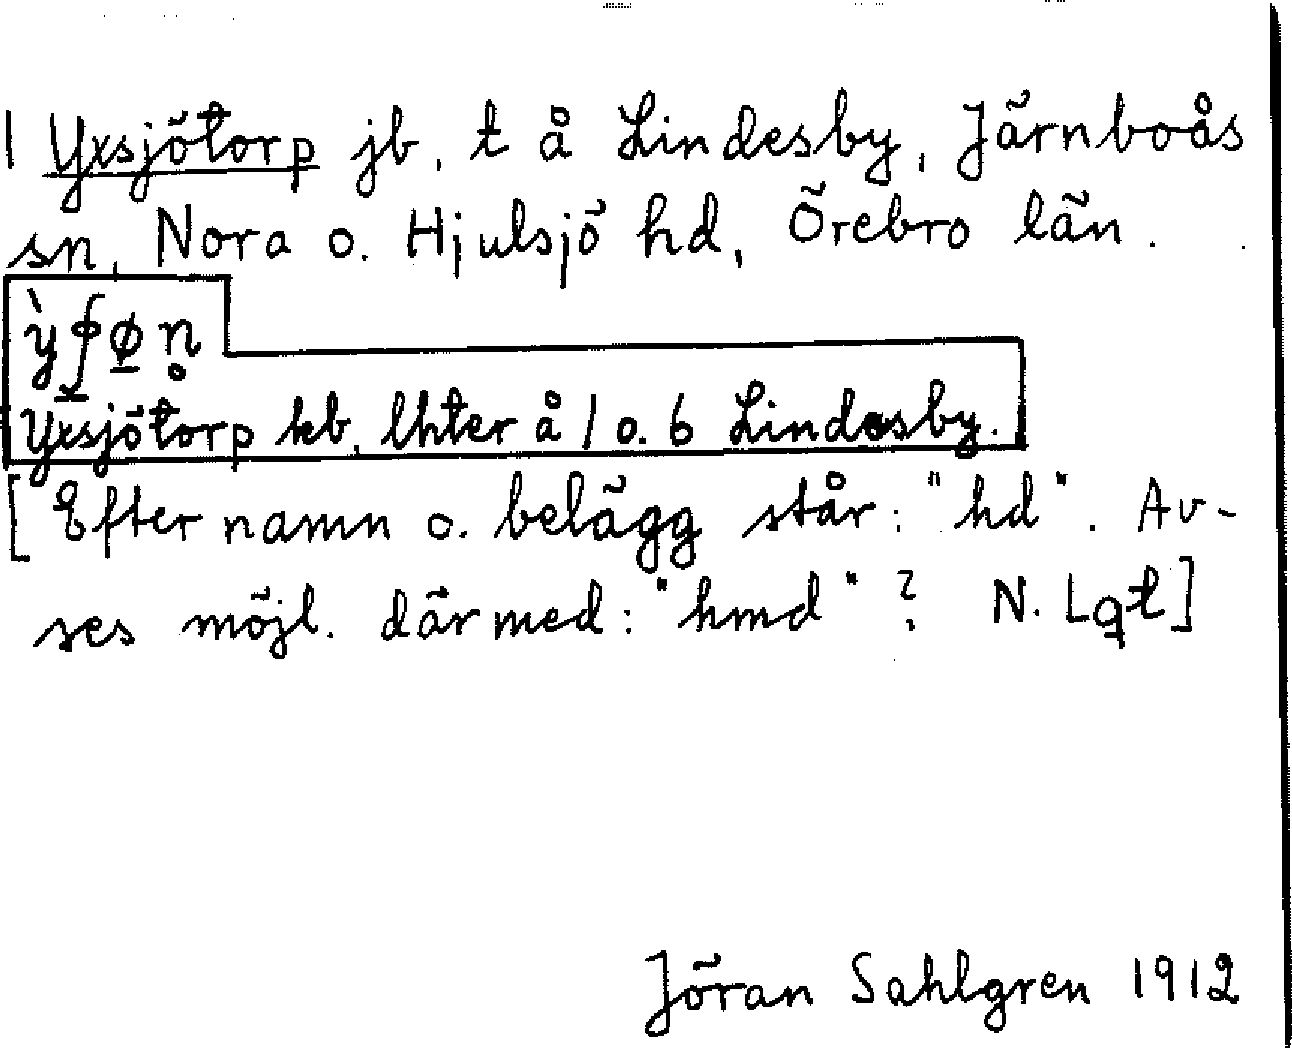 | Yxsjötorp jb, t å Lindesby, Järnboås
sn, Nora o. Hjulsjö hd, Örebro län.
Yxsjötorp kb, lhter å 1 o. 6 Lindesby.
[Efter namn o. belägg står: "hd". Av-
ses möjl. därmed: "hmd"? N. Lqt]
Jöran Sahlgren 1912